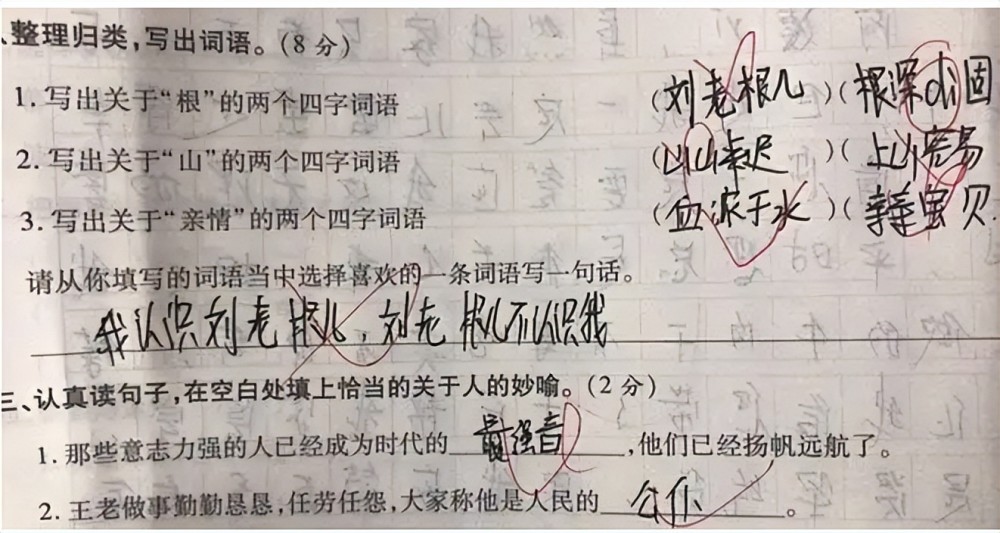 、整理归类,写出词语。(8分)
1. 写出关于“根”的两个四字词语 (刘老根儿)(根深 固
2. 写出关于“山”的两个四字词语 ( 山 迟)(上山容易
3. 写出关于“亲情”的两个四字词语 (血浓于水)( 宝贝
请从你填写的词语当中选择喜欢的一条词语写一句话。
我认识刘老根儿,刘老根儿不认识我
三、认真读句子,在空白处填上恰当的关于人的妙喻。(2分)
1. 那些意志力强的人已经成为时代的 最强音 ,他们已经扬帆远航了。
2. 王老做事勤勤恳恳,任劳任怨,大家称他是人民的 公仆 。